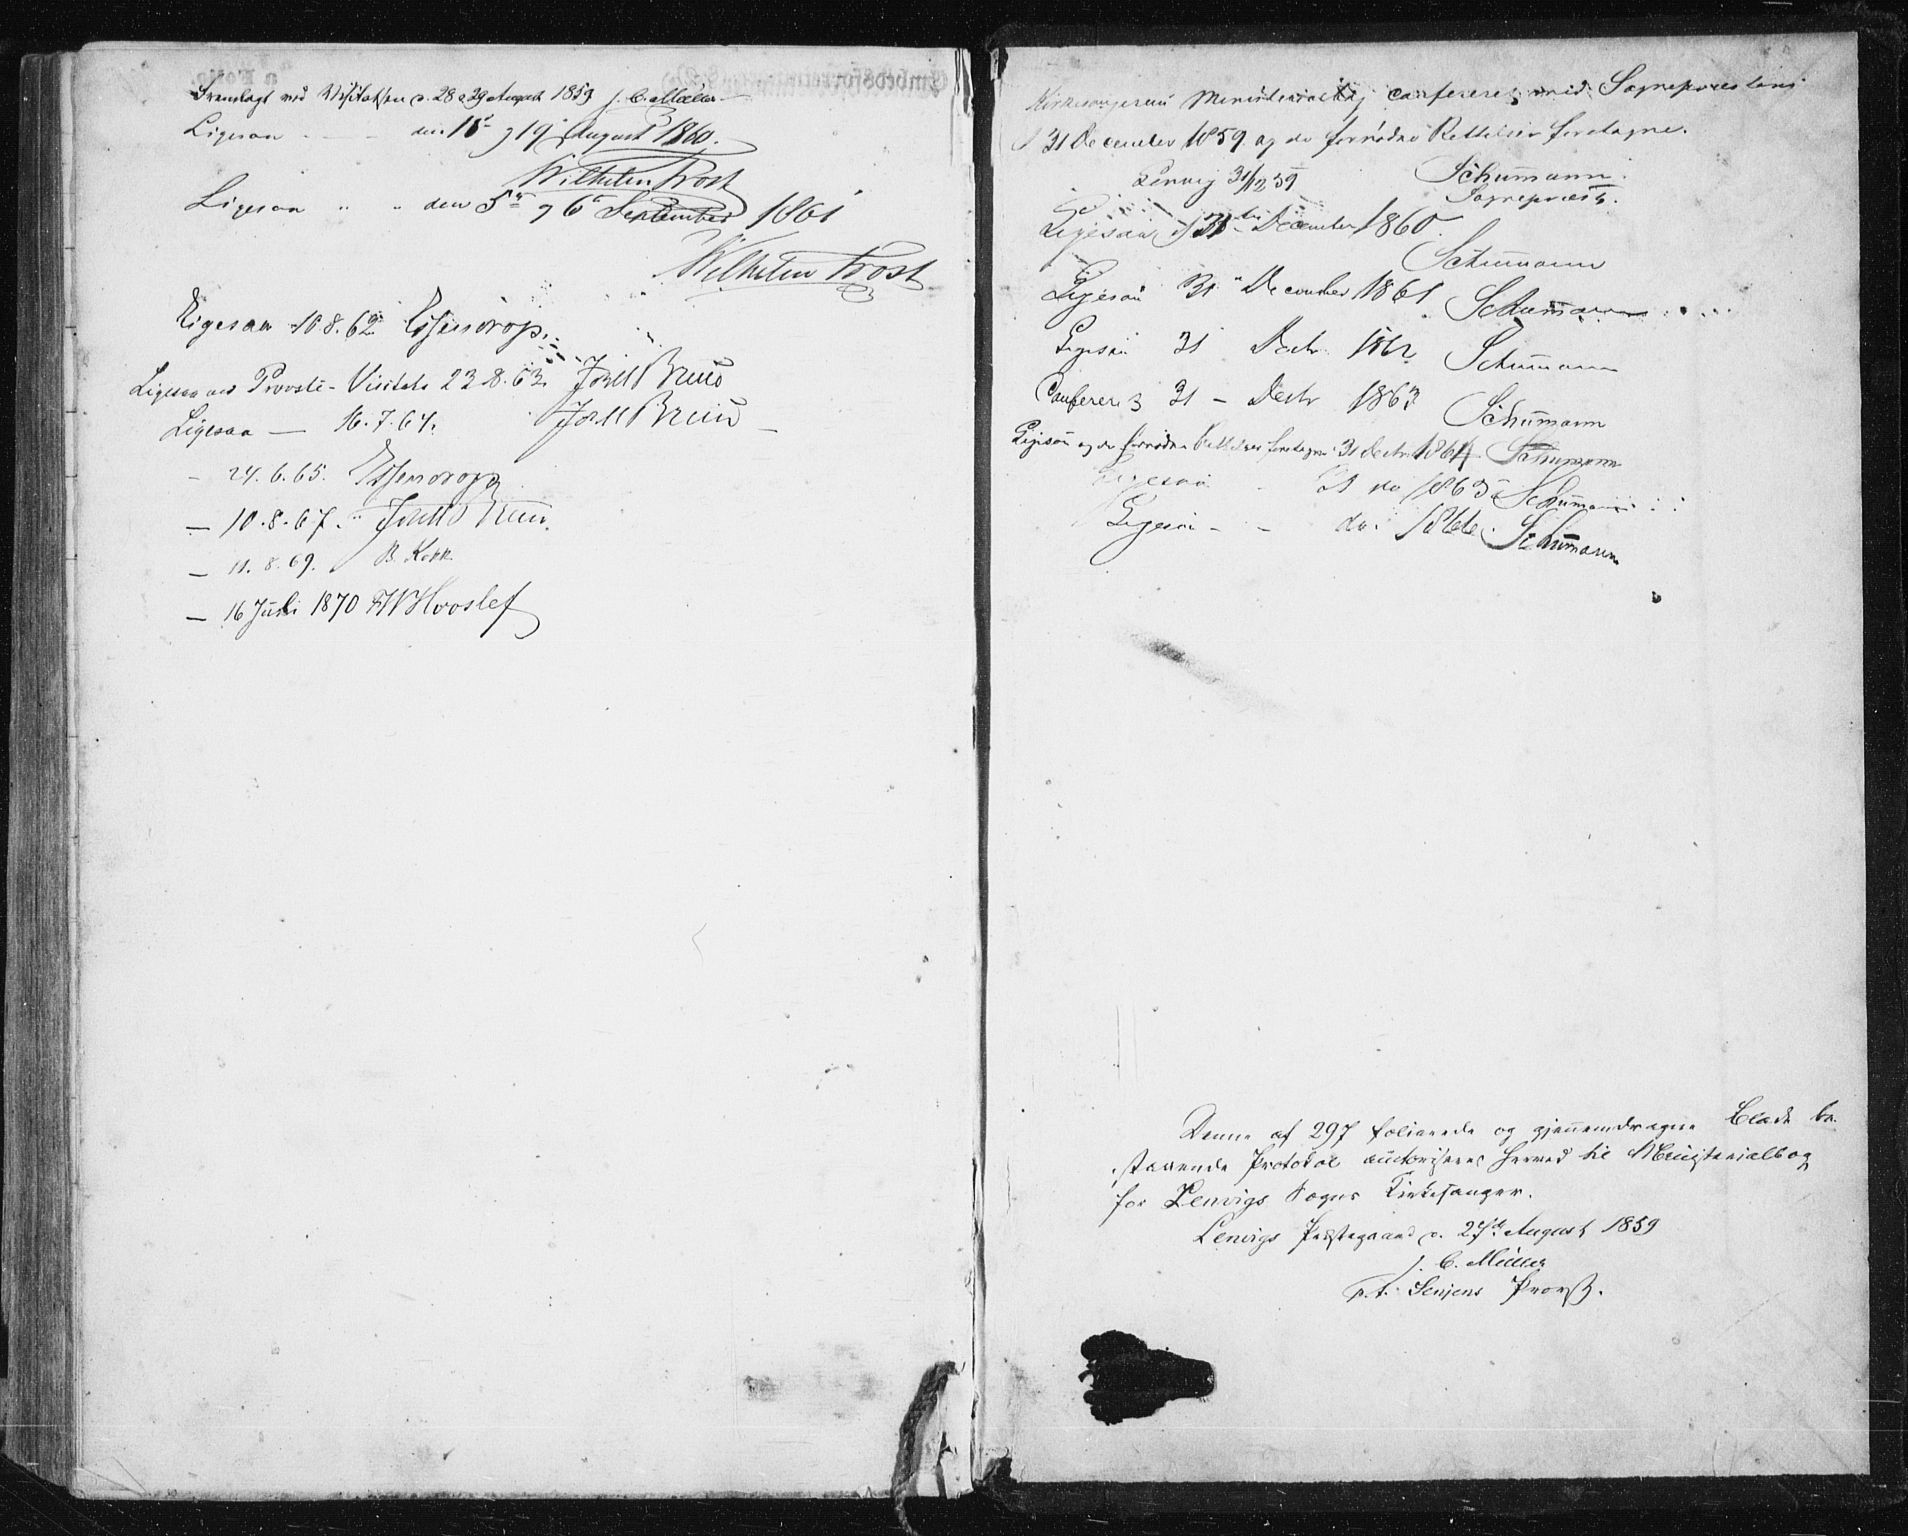 Fremlagt ved Visitatsen d. 28 & 29 August 1859 J. C. Müller
Ligesaa den 18de og 19de August 1860.
Wilhelm Frost
Ligesaa " " den 5te og 6te September 1861
Wilhelm Frost
Ligesaa 10.8.62 Essendrop.
Ligesaa ved Provste-Visitats 23.8.63. Bruun
Ligesaa — 16.7.64. Bruun
- 24.6.65. Essendrop
— 10.8.67. Bruun.
— 11.8.69. B. Kokk
— 16 Juli 1870 FWHvoslef
Kirkesangerens Ministerialbog confereret med Sognepræstens
31 December 1859 og de fornødne Rettelser foretagne.
Lenvig 31/12 59 Schumann.
Sognepræst.
Ligesaa 31te December 1860.
Schumann
Ligesaa 31 December 1861. Schumann
Ligesaa 31 Decbr. 1862. Schumann
Confereret 31 - Decbr 1863 Schumann
Ligesaa og de fornødne Rettelser foretagne 31 Decbr 1864 Schumann
Ligesaa - 31 do 1865 Schumann
Ligesaa - - do. 1866. Schumann
Denne af 297 folierede og gjennemdragne Blade be-
staaende Protokol auctoriseres herved til Ministerialbog
for Lenvigs Sogns Kirkesanger.
Lenvigs Præstegaard d. 27de August 1859
J. C. Müller
p.t. Senjens Provst.